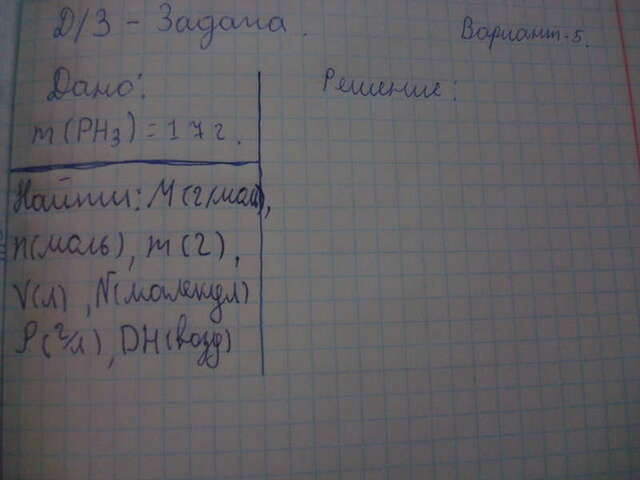 Д/З - Задача.
Вариант-5.
Дано:
Решение:
m(PH₃) = 17г.
Найти: M(г/моль),
n(моль), m(г),
V(л), N(молекул)
ρ(г/л), DH(возд)